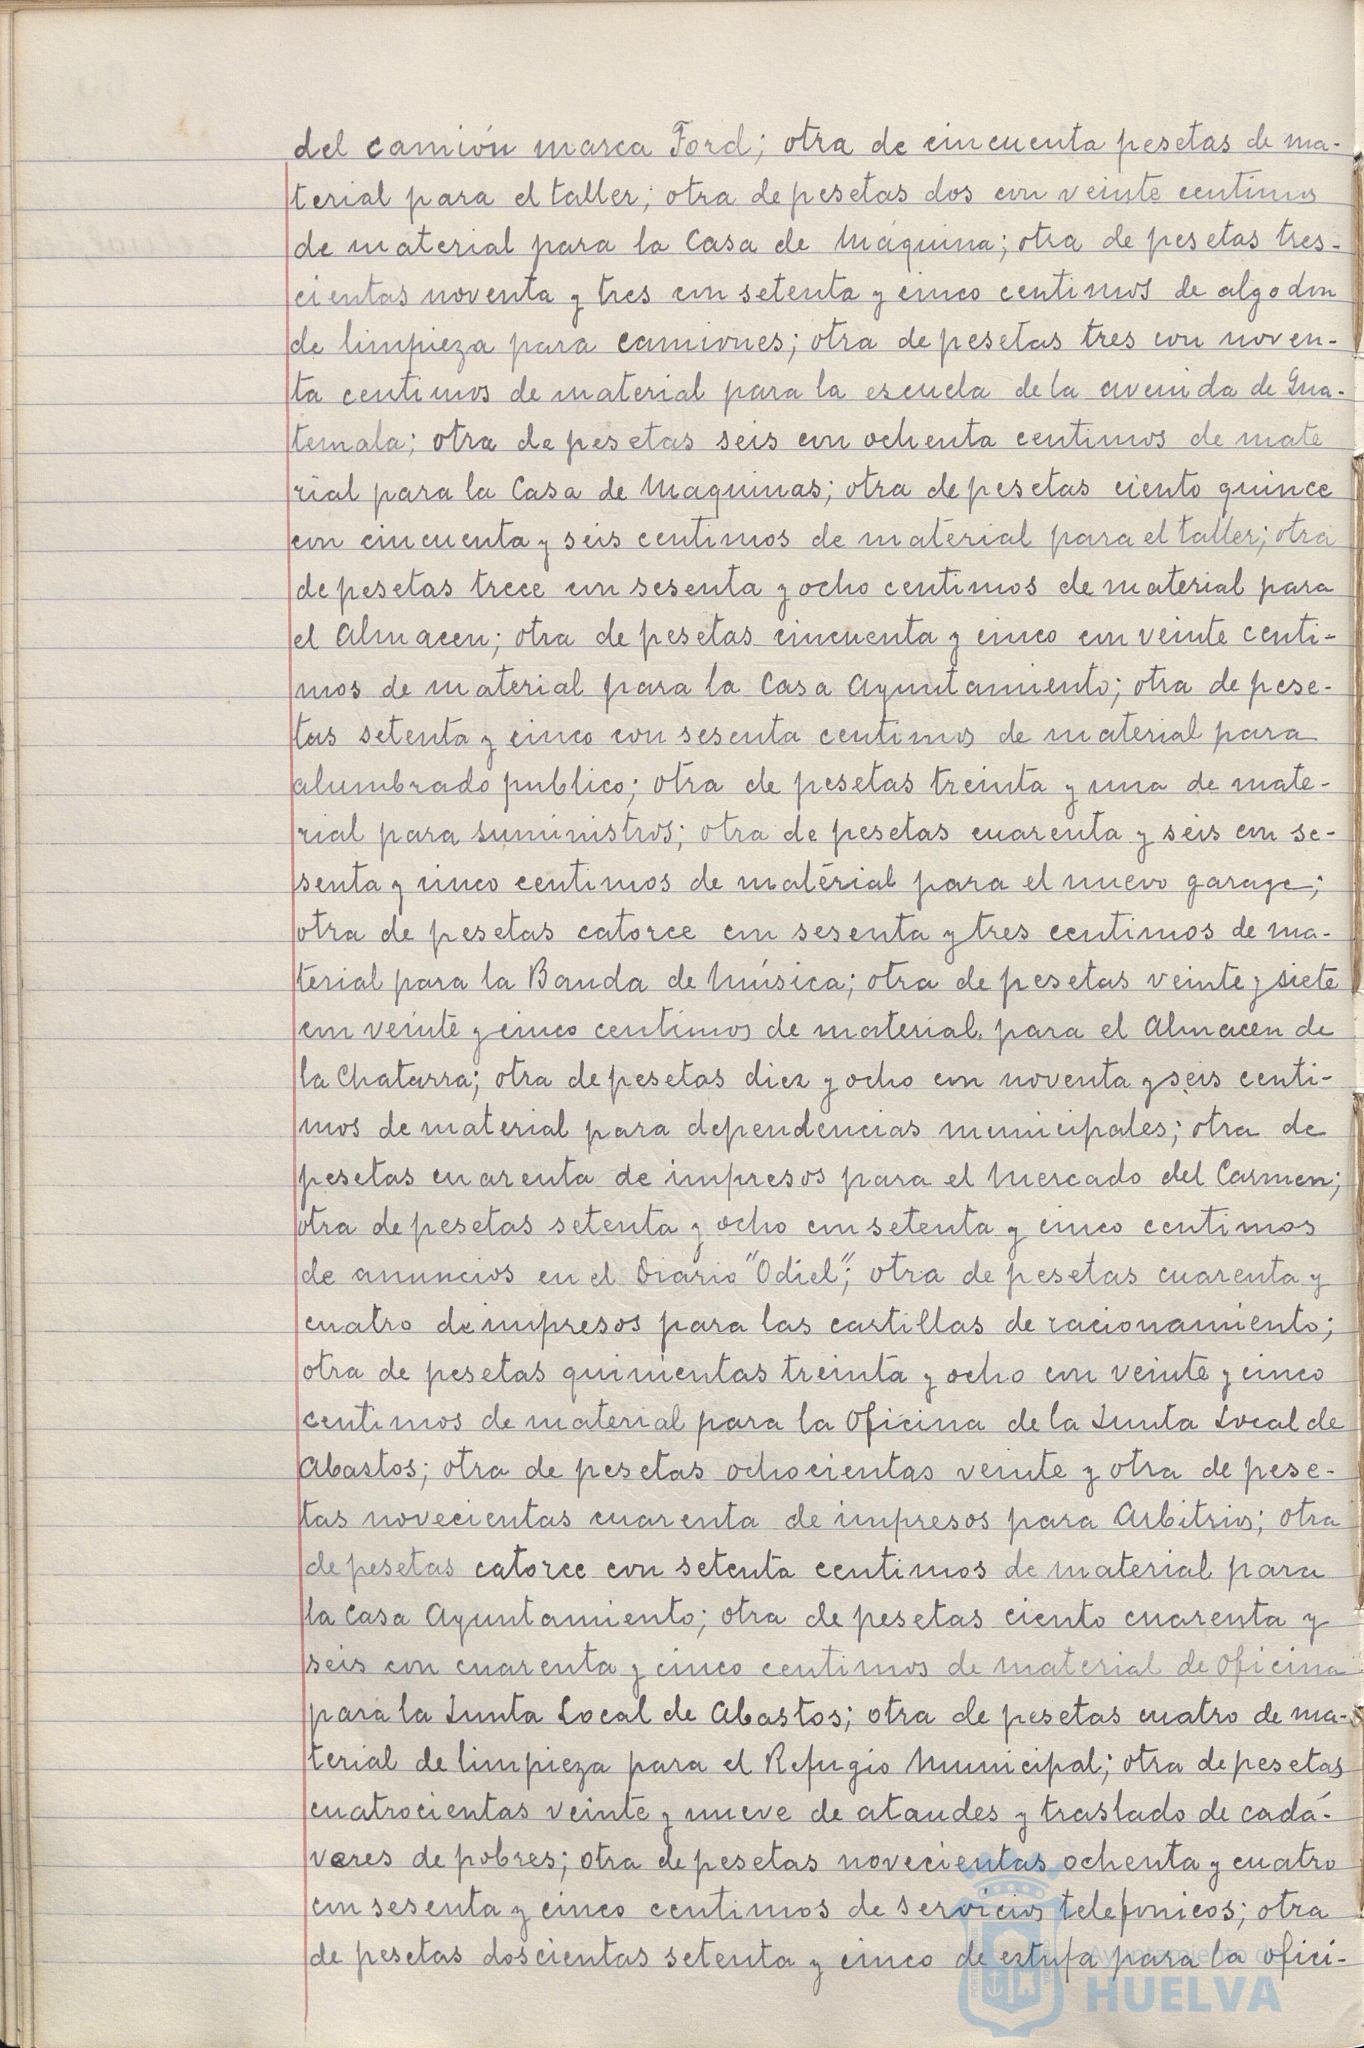 del camión marca Ford; otra de cincuenta pesetas de ma-
terial para el taller; otra de pesetas dos con veinte centimos
de material para la Casa de Máquina; otra de pesetas tres-
cientas noventa y tres con setenta y cinco centimos de algodon
de limpieza para camiones; otra de pesetas tres con noven-
ta centimos de material para la escuela de la avenida de Gua-
temala; otra de pesetas seis con ochenta centimos de mate
rial para la Casa de Maquinas; otra de pesetas ciento quince
con cincuenta y seis centimos de material para el taller; otra
de pesetas trece con sesenta y ocho centimos de material para
el Almacen; otra de pesetas cincuenta y cinco con veinte centi-
mos de material para la Casa Ayuntamiento; otra de pese-
tas setenta y cinco con sesenta centimos de material para
alumbrado publico; otra de pesetas treinta y una de mate-
rial para suministros; otra de pesetas cuarenta y seis con se-
senta y cinco centimos de material para el nuevo garage;
otra de pesetas catorce con sesenta y tres centimos de ma-
terial para la Banda de Música; otra de pesetas veinte y siete
con veinte y cinco centimos de material para el Almacen de
la Chatarra; otra de pesetas diez y ocho con noventa y seis centi-
mos de material para dependencias municipales; otra de
pesetas cuarenta de impresos para el Mercado del Carmen;
otra de pesetas setenta y ocho con setenta y cinco centimos
de anuncios en el Diario "Odiel"; otra de pesetas cuarenta y
cuatro de impresos para las cartillas de racionamiento;
otra de pesetas quinientas treinta y ocho con veinte y cinco
centimos de material para la Oficina de la Junta Local de
Abastos; otra de pesetas ochocientas veinte y otra de pese-
tas novecientas cuarenta de impresos para Arbitrios; otra
de pesetas catorce con setenta centimos de material para
la Casa Ayuntamiento; otra de pesetas ciento cuarenta y
seis con cuarenta y cinco centimos de material de oficina
para la Junta Local de Abastos; otra de pesetas cuatro de ma-
terial de limpieza para el Refugio Municipal; otra de pesetas
cuatrocientas veinte y nueve de ataudes y traslado de cadá-
veres de pobres; otra de pesetas novecientas ochenta y cuatro
con sesenta y cinco centimos de servicios telefonicos; otra
de pesetas doscientas setenta y cinco de estufa para la ofici-
Ayuntamiento de
HUELVA